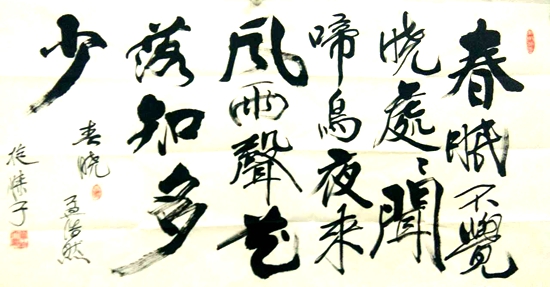 春眠不覺
晓處々聞
啼鳥夜来
风雨聲花
落知多
少
春晓
孟浩然